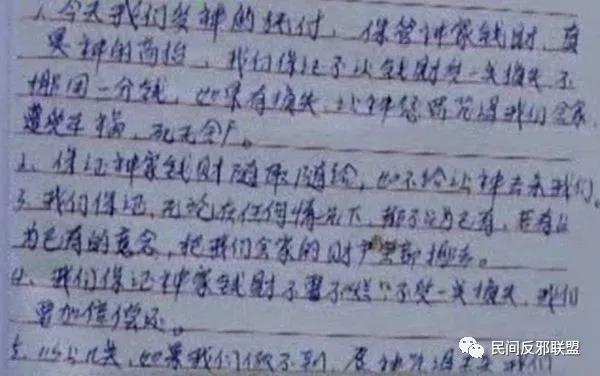 1、今天我们受神的托付,保管神家钱财,直
是神的高抬,我们保证不让钱财受一点损失,不
挪用一分钱,如果有损失,让神惩罚咒诅我们全家,
遭受车祸,死无全尸。
2、保证神家钱财随取随给,如不给让神击杀我们。
3、我们保证,无论在任何情况下,都不占为己有,若有占
为己有的意念,把我们全家的财产全部挪去。
4、我们保证神家钱财不霉不烂不受一点损失,我们
要加倍偿还。
5、以上几条,如果我们做不到,愿神咒诅 我们
民间反邪联盟